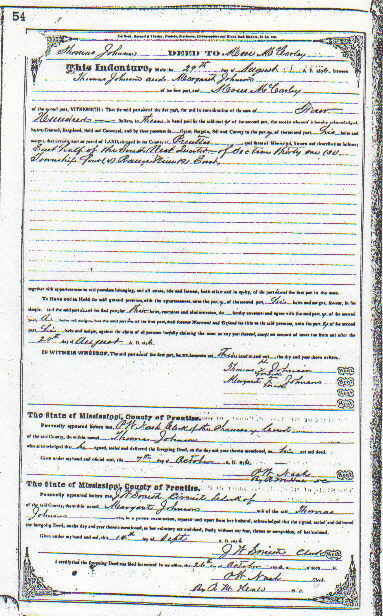 54
Thomas Johnson DEED TO Moses McCarley
This Indenture, Made the 29th day of August A. D. 1876, between
Thomas Johnson and Margaret Johnson
of the first part, and Moses McCarley
of the second part, WITNESSETH: That the said part of the first part, for and in consideration of the sum of Three
Hundred Dollars, to them in hand paid by the said part of the second part, the receipt whereof is hereby acknowledged,
have Granted, Bargained, Sold and Conveyed, and by these presents do Grant, Bargain, Sell and Convey to the party of the second part, his heirs and
assigns, that certain tract or parcel of LAND, situated in the County of Prentiss and State of Mississippi, known and described as follows:
East half of the South West Quarter of Section Thirty one (31)
Township four (4) Range Nine (9) East,
together with appurtenances to said premises belonging, and all estate, title and interest, both at law and in equity, of the part of the first part in the same.
To Have and to Hold the said granted premises, with the appurtenances, unto the party of the second part, his heirs and assigns, forever, in fee
simple. And the said part of the first part, for their heirs, executors and administrators, do hereby covenant and agree with the said part of the second
part,
part, his heirs and assigns, against the claim of all persons
29th August A. D. 187
IN WITNESS WHEREOF, The said part of the first part, have hereunto set Their hand and seal, on the day and year above written.
Thomas his Johnson
mark
Margaret Johnson
mark
The State of Mississippi, County of Prentiss.
Personally appeared before me, P W Nash Clerk of the Chancery Court
of the said County, the within named Thomas Johnson
who acknowledged that he signed, sealed and delivered the foregoing Deed, on the day and year therein mentioned, as his act and deed.
Given under my hand and official seal, this 7th day of October A. D. 1876.
P W Nash
D C
The State of Mississippi, County of Prentiss.
Personally appeared before me, J W Smith Circuit Clerk of
of the said County, the within named Margaret Johnson wife of the said Thomas
Johnson who, in a private examination, separate and apart from her husband, acknowledged that she signed, sealed and delivered
the foregoing Deed, on the day and year therein mentioned, as her voluntary act and deed, freely, without any fear, threats or compulsion, of her husband.
Given under my hand and official seal, this 14th day of Sept A. D. 1876
J W Smith Clerk
I certify that the foregoing Deed was filed for record in my office, on the day of October
P W Nash Clerk.
By A M D.C.